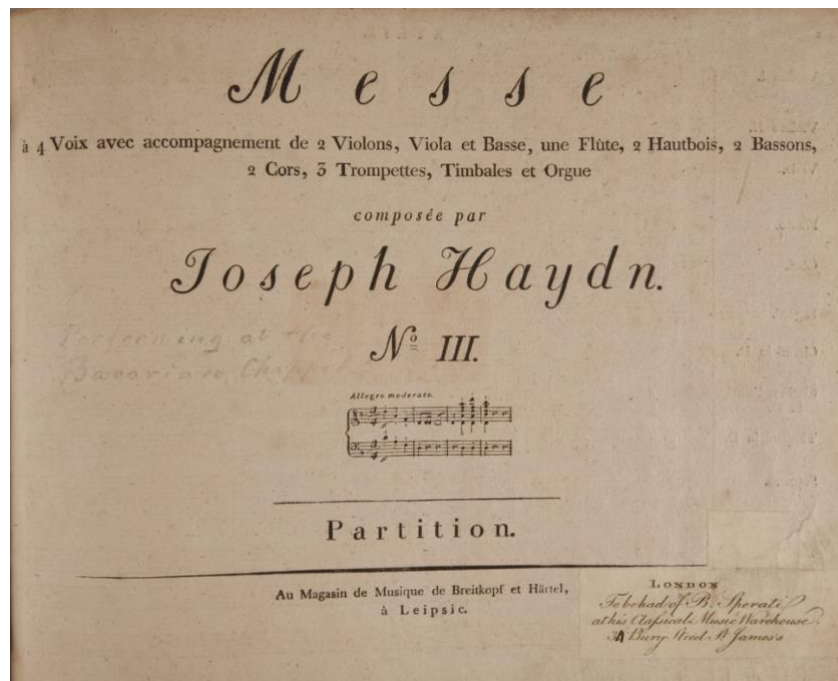 Messe
à 4 Voix avec accompagnement de 2 Violons, Viola et Basse, une Flûte, 2 Hautbois, 2 Bassons,
2 Cors, 3 Trompettes, Timbales et Orgue
composée par
Joseph Haydn.
Nº III.
Performing at the
Bavarian Chappel
Allegro moderato.
Partition.
Au Magasin de Musique de Breitkopf et Härtel,
à Leipsic.
LONDON
To be had of B. Sperati
at his Classical Music Warehouse
Bury Street St James's